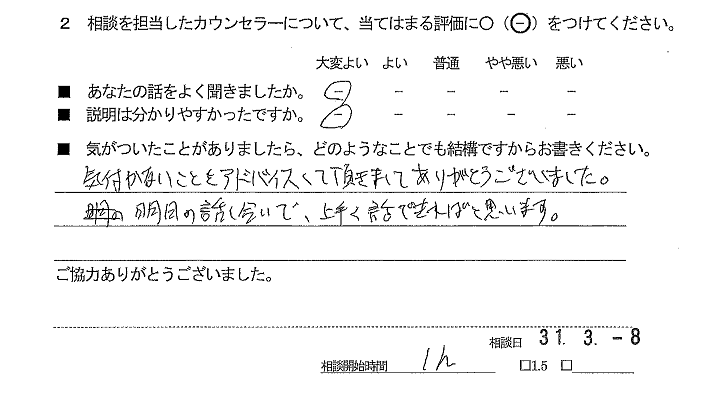 2 相談を担当したカウンセラーについて、当てはまる評価に○（㊀）をつけてください。
大変よい よい 普通 やや悪い 悪い
■ あなたの話をよく聞きましたか。 － － － － －
■ 説明は分かりやすかったですか。 － － － － －
■ 気がついたことがありましたら、どのようなことでも結構ですからお書きください。
気付かないことをアドバイスして頂きましてありがとうございました。
明日の話し合いで、上手く話できればと思います。
ご協力ありがとうございました。
相談日 31. 3. -8
相談開始時間 1h □1.5 □